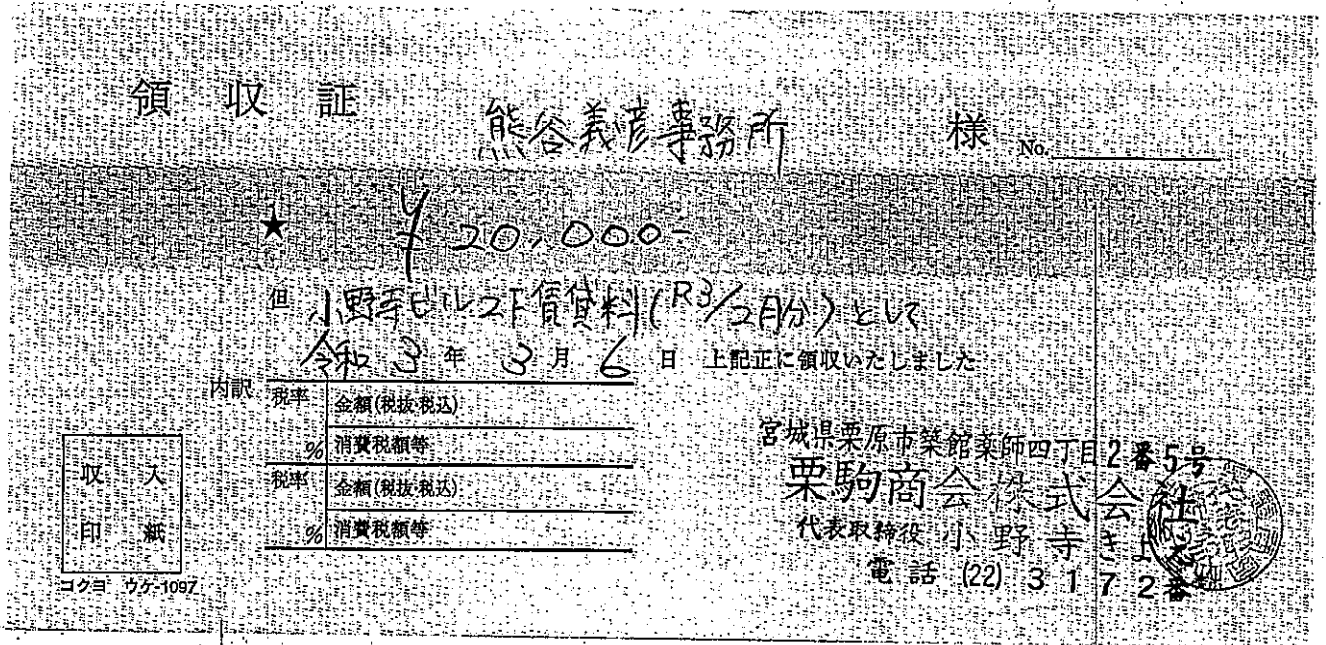 領収証 熊谷義彦事務所 様 No.
★ ¥20,000-
但 小野寺ビル2F賃貸料(R3/2月分)として
令和3年3月6日 上記正に領収いたしました
内訳
税率 金額(税抜・税込)
% 消費税額等
税率 金額(税抜・税込)
% 消費税額等
収入
印紙
コクヨ ウケ-1097
宮城県栗原市築館薬師四丁目2番5号
栗駒商会株式会社
代表取締役 小野寺きよ
電話 (22) 3172番